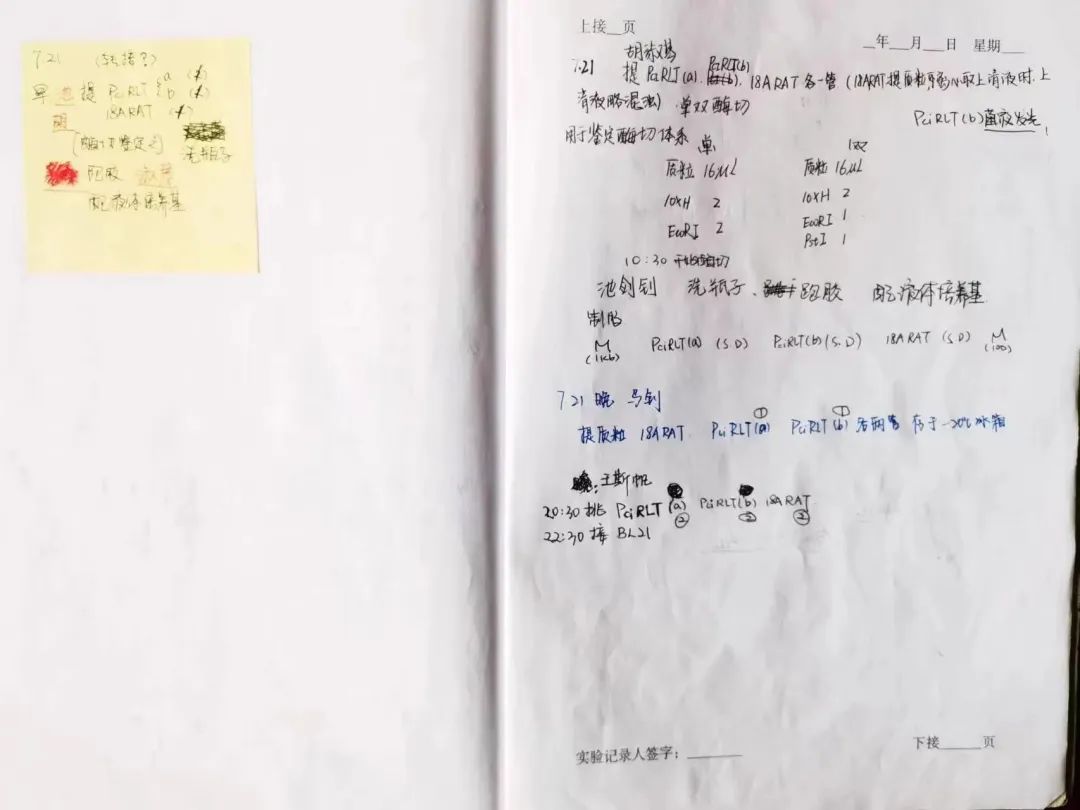 7.21 (转接?)
早 提 PciRLT a
b
18ARAT
配胶
洗瓶子
配液体培养基
上接__页
__年___月___日 星期___
7.21 提 PciRLT(a). PciRLT(b). 18ARAT各一管 (18ARAT提质粒 取上清液时,上
清液略混浊) 单双酶切
PciRLT(b)菌液发
用于鉴定酶切体系 单 双
质粒 16μL 质粒 16μL
10×H 2 10×H 2
EcoRI 2 EcoRI 1
PstI 1
10:30 开始酶切
洗瓶子、跑胶 配液体培养基
制胶
M PciRLT(a) (S.D) PciRLT(b) (S.D) 18ARAT (S.D) M
(1kb) (100)
7.21 晚 马钊
提质粒 18ARAT PciRLT(a)① PciRLT(b)① 各两管 存于-20℃冰箱
王斯帆
20:30 挑 PciRLT(a)② PciRLT(b)② 18ARAT②
22:30 接 BL21
实验记录人签字:________
下接_____页